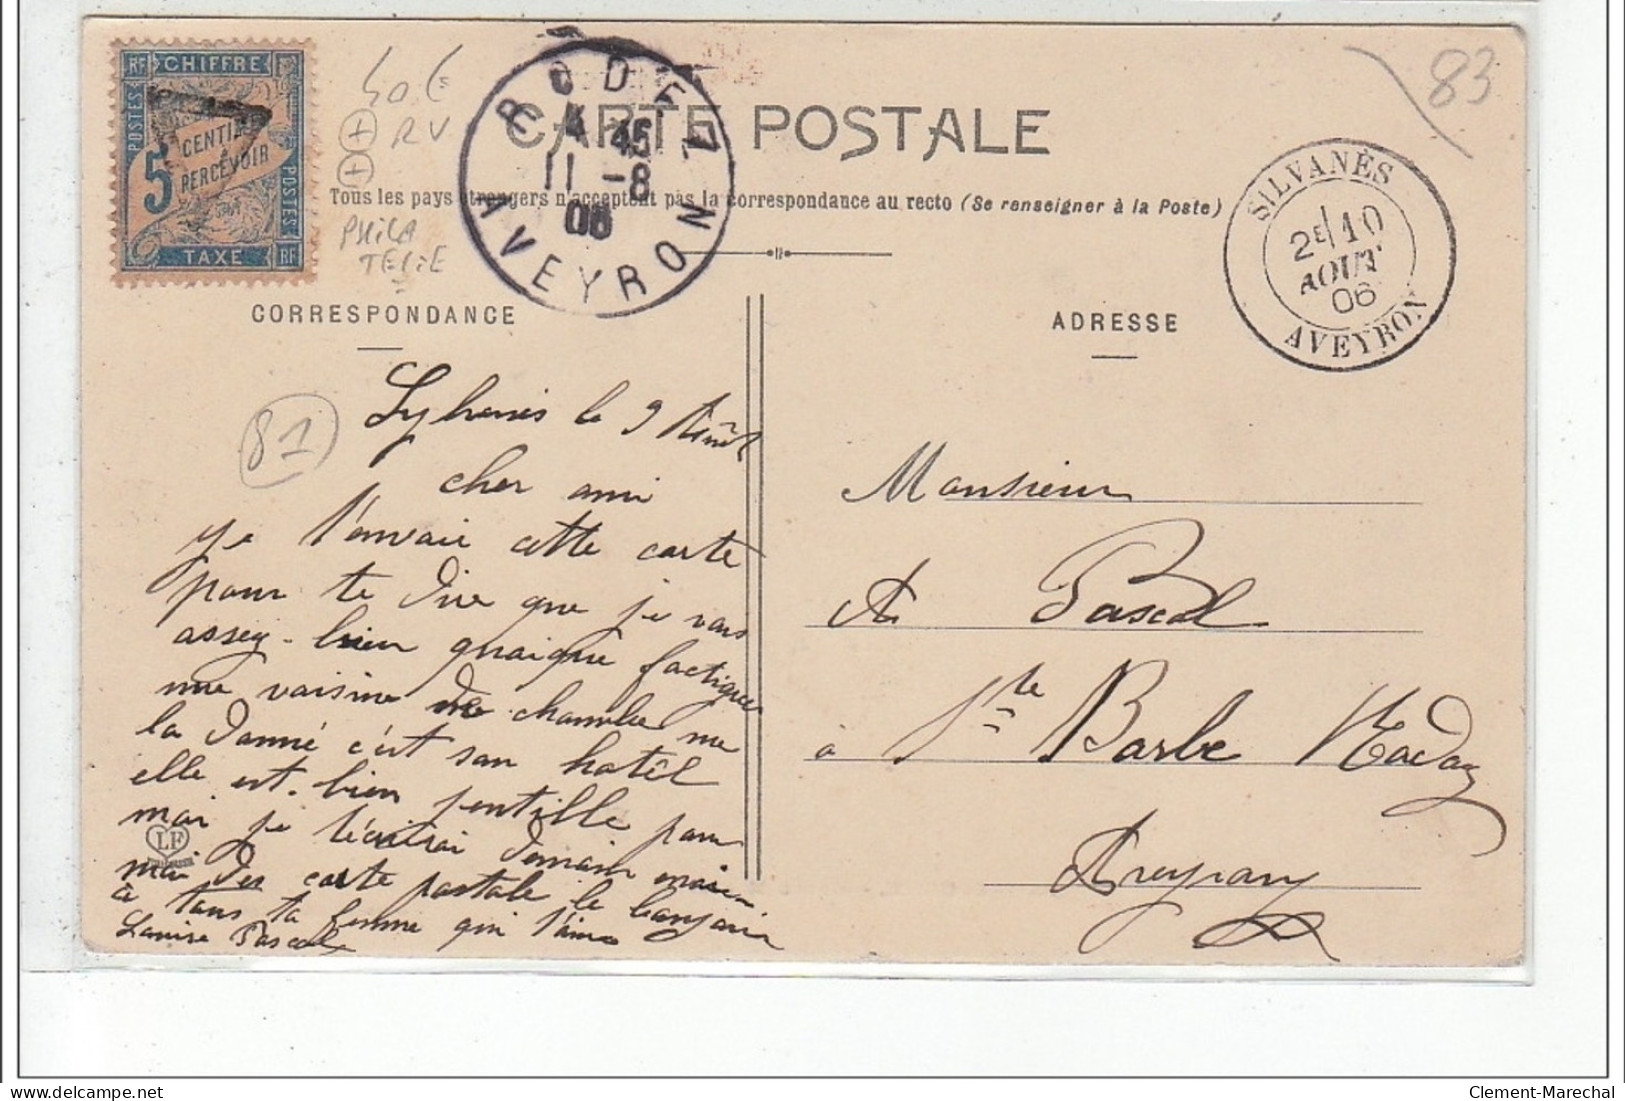 RF CHIFFRE
POSTES
5
CENTIMES
PERCEVOIR
POSTES
TAXE RF
50 €
RV
PHILA
TELIE
RODEZ
4 45
11 -8
06
AVEYRON
CARTE POSTALE
83
Tous les pays étrangers n'acceptent pas la correspondance au recto (Se renseigner à la Poste)
SILVANÈS
2E 10
AOUT
06
AVEYRON
CORRESPONDANCE
ADRESSE
81
le 9 Août
cher ami
je t'envoie cette carte
pour te dire que je vais
assez-bien quaique factiguée
une vaisine de chambre me
la danné c'est san hatêl
elle est-bien jentille pour
moi je t'écrirai demain
moi des carte partale le bonjour
à tous ta femme qui t'aime
Lauise Pascal
LF
Monsieur
A Pascal
à Ste Barbe
Aveyron
Clement-Marechal